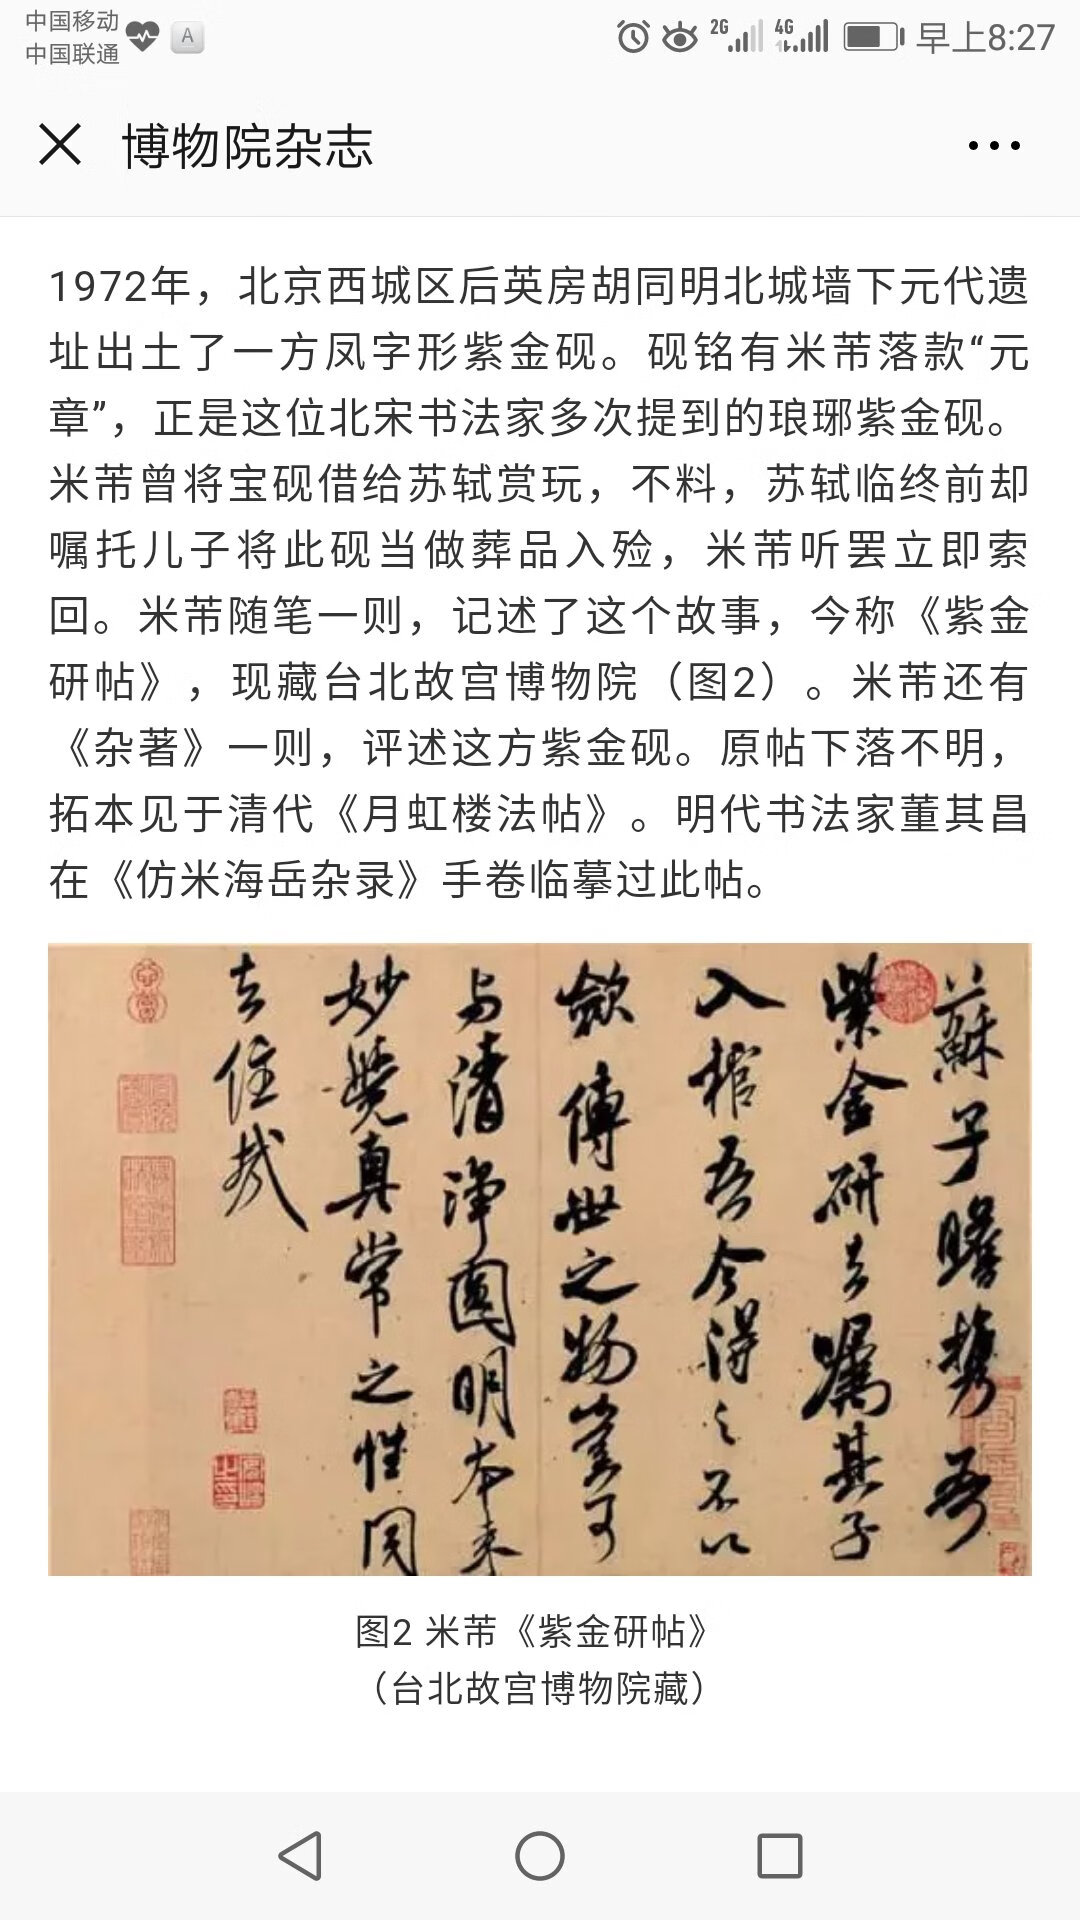 中国移动
中国联通
A
2G
4G
早上8:27
博物院杂志
1972年，北京西城区后英房胡同明北城墙下元代遗
址出土了一方凤字形紫金砚。砚铭有米芾落款“元
章”，正是这位北宋书法家多次提到的琅琊紫金砚。
米芾曾将宝砚借给苏轼赏玩，不料，苏轼临终前却
嘱托儿子将此砚当做葬品入殓，米芾听罢立即索
回。米芾随笔一则，记述了这个故事，今称《紫金
研帖》，现藏台北故宫博物院（图2）。米芾还有
《杂著》一则，评述这方紫金砚。原帖下落不明，
拓本见于清代《月虹楼法帖》。明代书法家董其昌
在《仿米海岳杂录》手卷临摹过此帖。
蘇子瞻攜吾
紫金研去嘱其子
入棺吾今得之不以
歛傳世之物豈可
与清淨圓明本来
妙覺真常之性同
去住哉
图2 米芾《紫金研帖》
（台北故宫博物院藏）